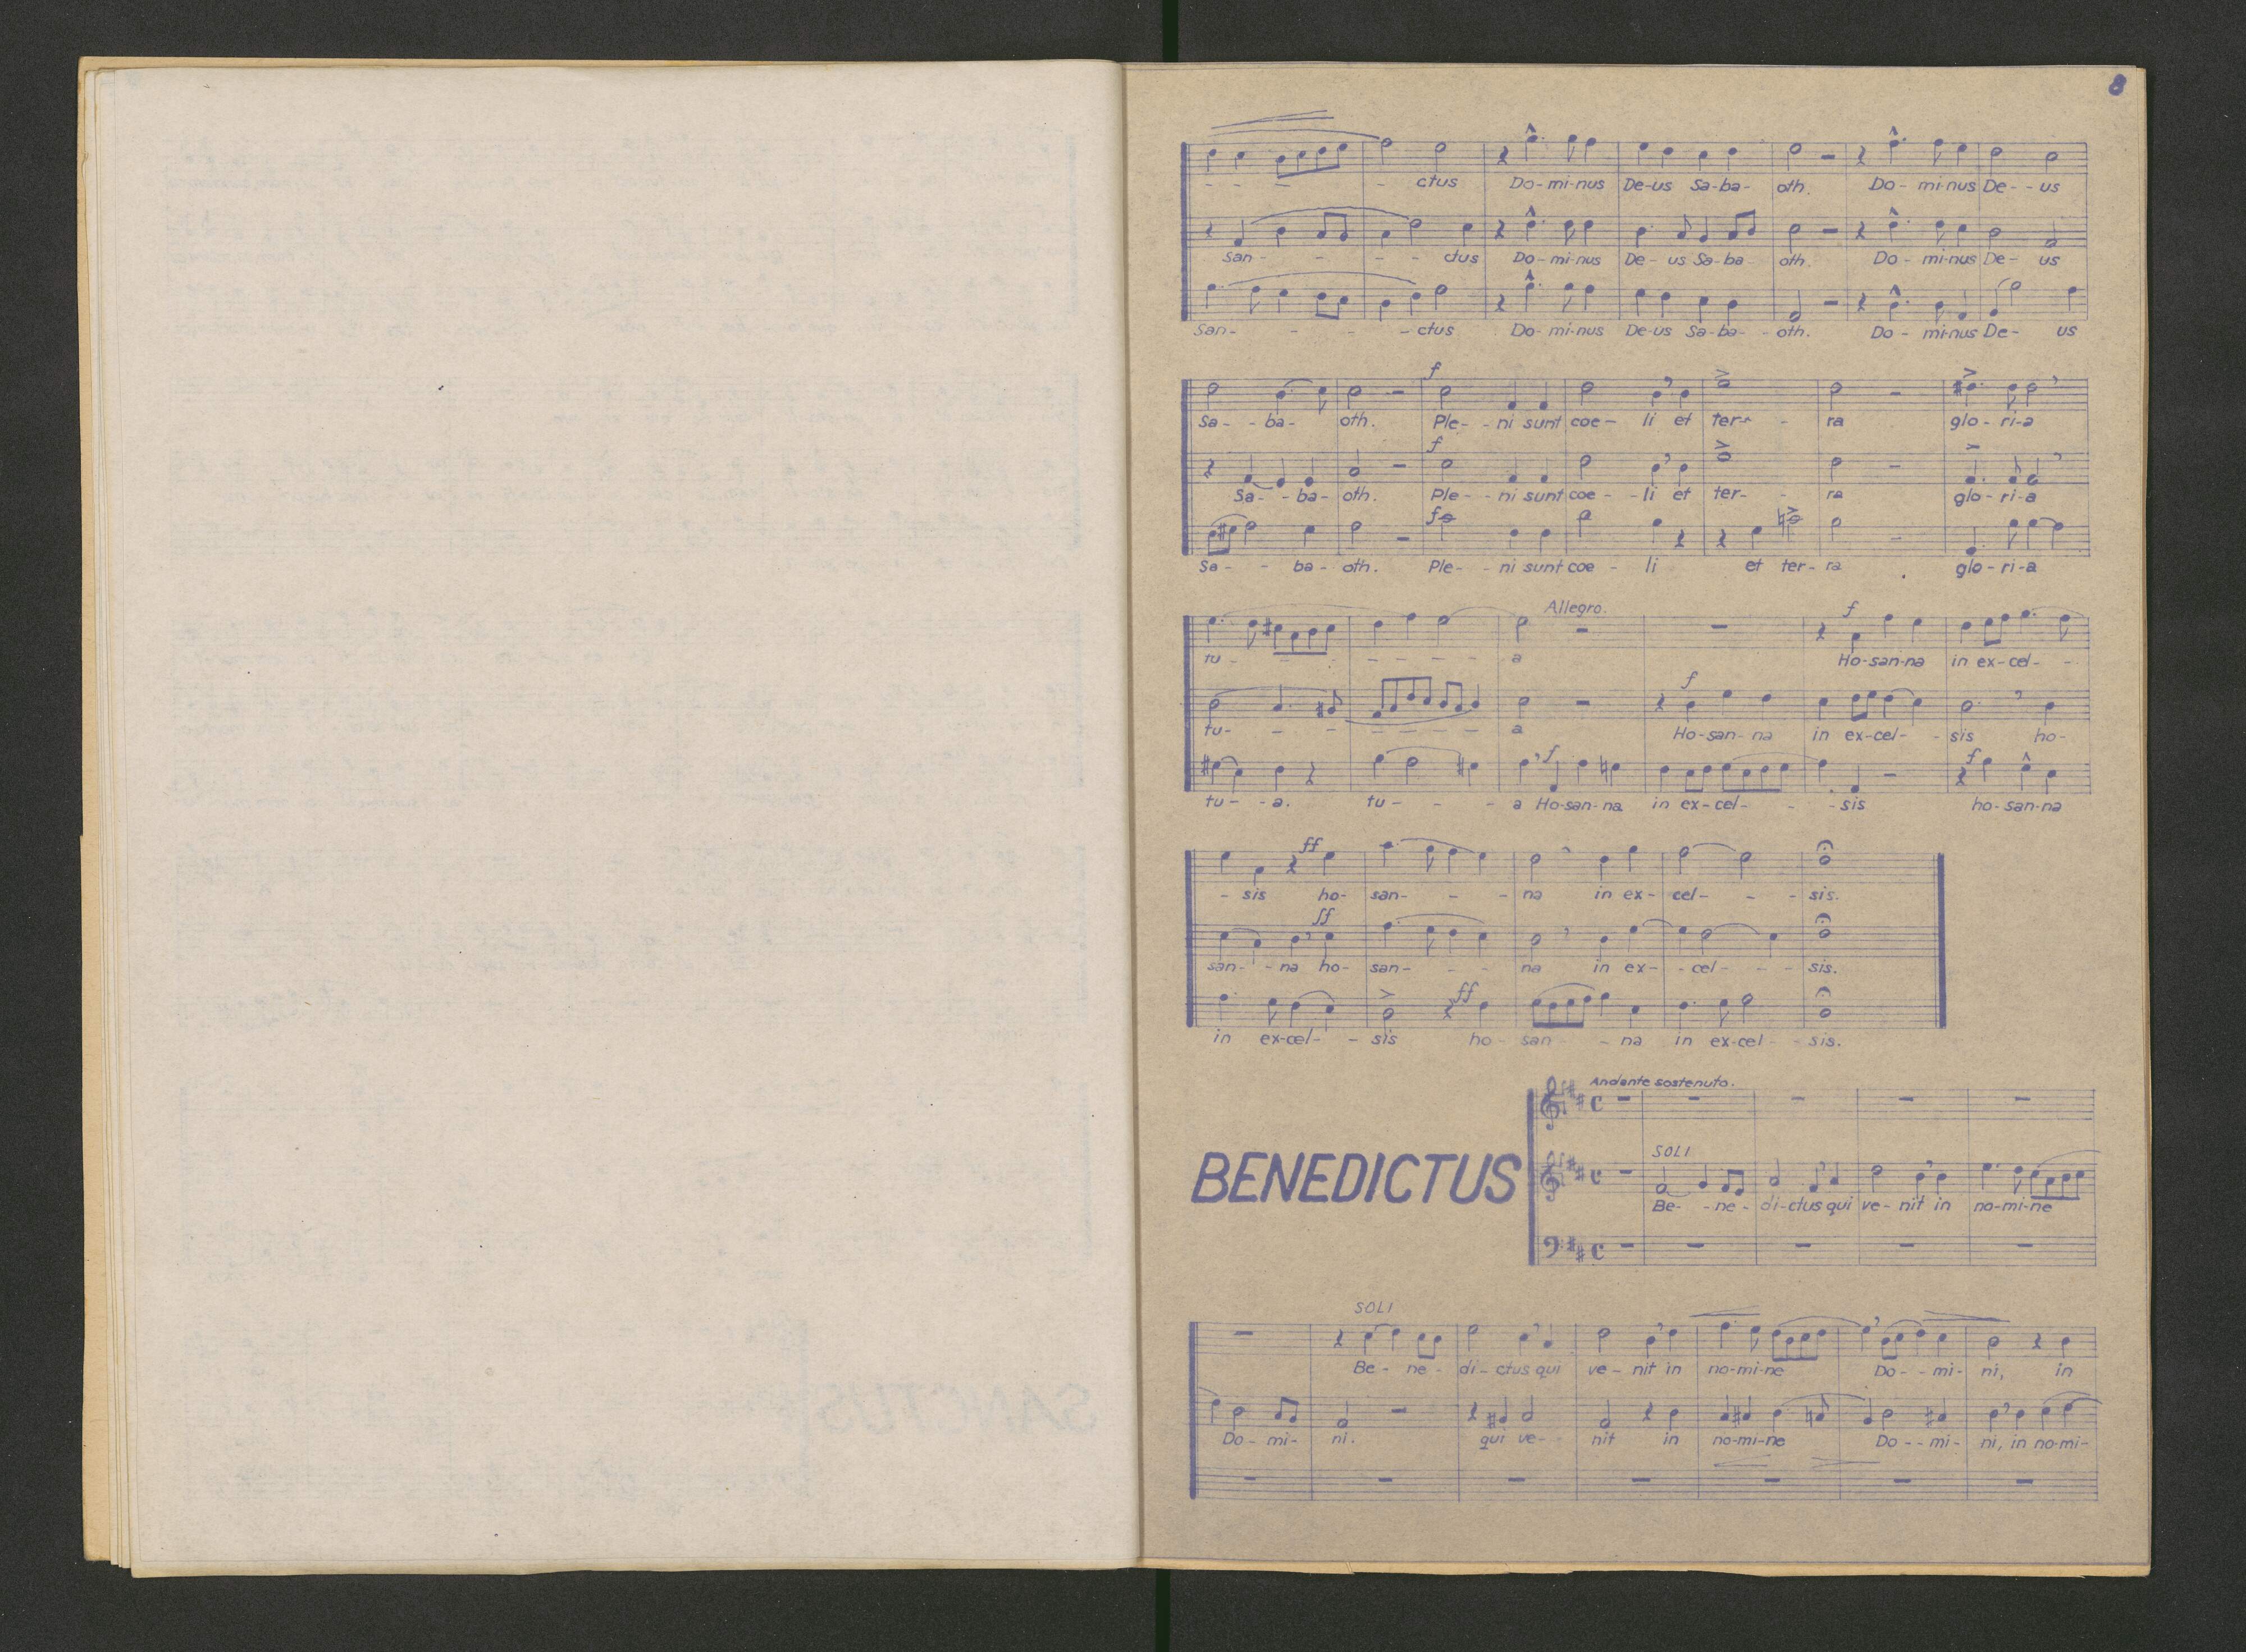 8
- - - - ctus Do-mi-nus De-us Sa-ba- oth. Do- mi-nus De-- us
San- - - - ctus Do-mi-nus De-us Sa-ba- oth. Do- mi-nus De- us
San- - - - ctus Do-mi-nus De-us Sa-ba- - oth. Do- mi-nus De- us
f
Sa- - ba- oth. Ple- - ni sunt coe- li et ter- - ra glo-ri-a
f
Sa- - ba- oth. Ple- - ni sunt coe- - li et ter- - ra glo-ri-a
f
Sa- - ba- oth. Ple- - ni sunt coe - li et ter- ra glo-ri-a
Allegro. f
tu- - - - - - - a Ho-san-na in ex-cel- -
f
tu- - - - - - - a Ho-san-na in ex-cel- - sis ho-
f f
tu- -a. tu- - - a Ho-san-na in ex-cel- - -sis ho-san-na
ff
- sis ho- san- - - na in ex- cel- - - sis.
ff
san- - na ho- san- - - na in ex- - cel- - - sis.
ff
in ex-cel- - sis ho- san- - na in ex-cel- - sis.
Andante sostenuto.
C
SOLI
BENEDICTUS
C
Be- -ne- di-ctus qui ve-nit in no-mi-ne
C
SOLI
Be- ne- di-ctus qui ve- nit in no-mi-ne Do- -mi- ni, in
Do- mi- ni. qui ve- nit in no-mi-ne Do- -mi- ni, in no-mi-